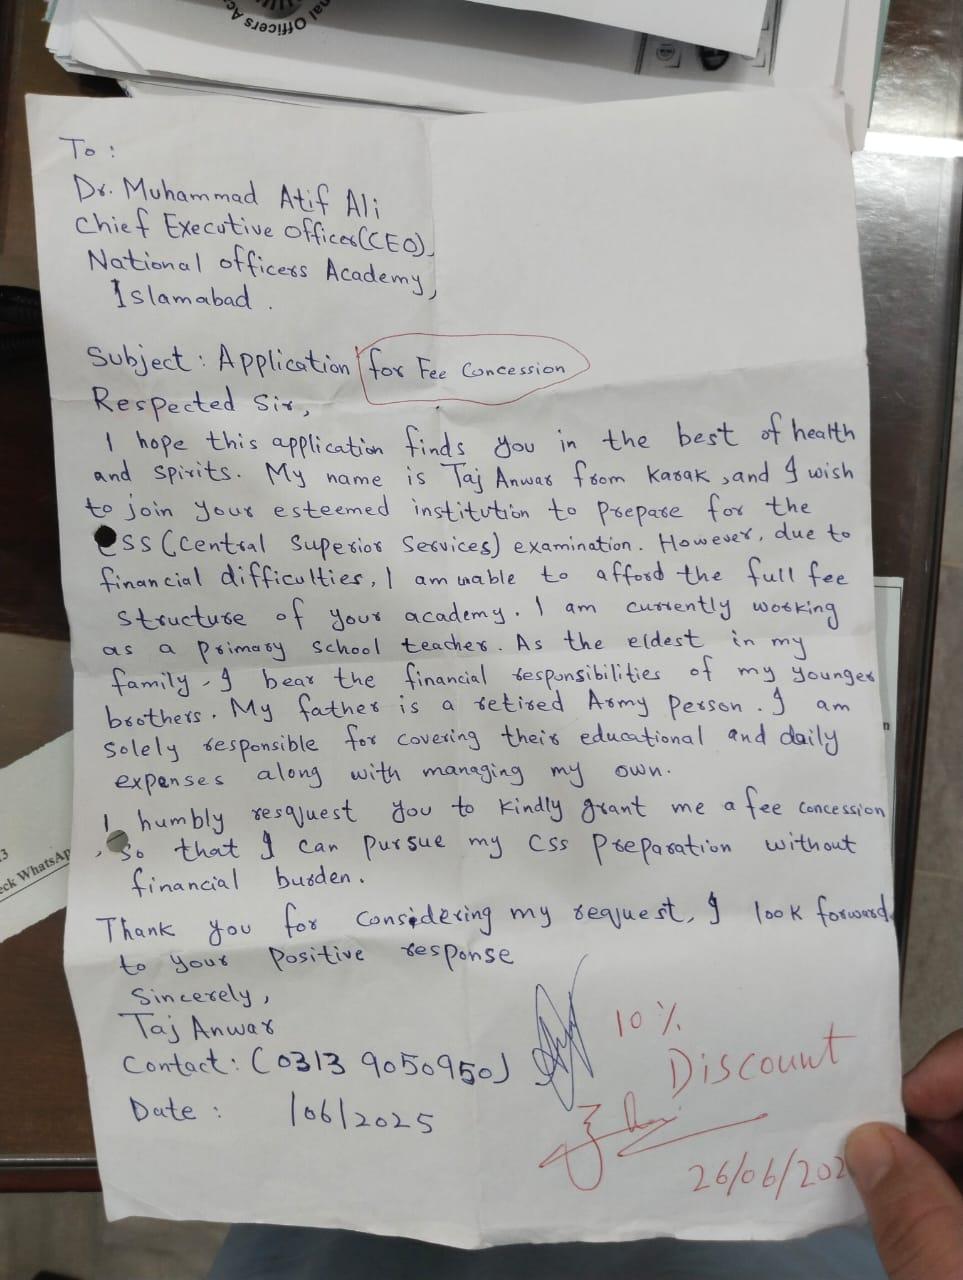 nal Officers Ac
To :
Dr. Muhammad Atif Ali
Chief Executive Officer(CEO),
National officers Academy,
Islamabad .
Subject : Application for Fee Concession
Respected Sir,
I hope this application finds you in the best of health
and spirits. My name is Taj Anwar from Karak ,and I wish
to join your esteemed institution to prepare for the
CSS (Central Superior Services) examination. However, due to
financial difficulties, I am unable to afford the full fee
structure of your academy. I am currently working
as a primary school teacher. As the eldest in my
family, I bear the financial responsibilities of my younger
brothers. My father is a retired Army Person. I am
solely responsible for covering their educational and daily
expenses along with managing my own.
I humbly resquest you to kindly grant me a fee concession
, so that I can pursue my CSS preparation without
financial burden.
Thank you for considering my request, I look forward
to your positive response
Sincerely,
Taj Anwar
Contact: (0313 9050950)
Date : /06/2025
10 %
Discount
26/06/202
eck WhatsAp